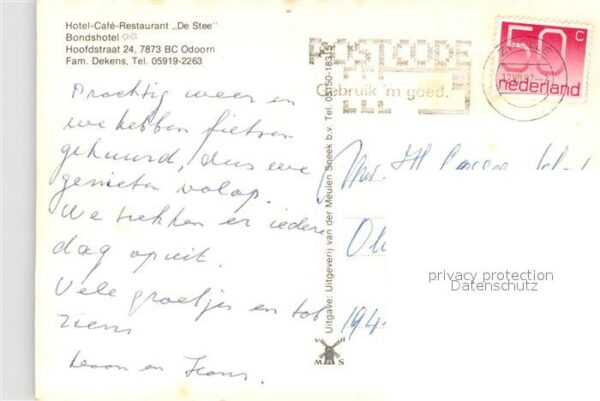 Hotel-Café-Restaurant „De Stee"
Bondshotel ✩✩
Hoofdstraat 24, 7873 BC Odoorn
Fam. Dekens, Tel. 05919-2263
POSTCODE
Gebruik 'm goed.
50 c
nederland
Prachtig weer en
we hebben fietsen
gehuurd, dus we
genieten volop.
We trekken er iedere
dag opuit.
Vele groetjes en tot
ziens
en
Uitgave: Uitgeverij van der Meulen Sneek b.v. Tel. 05150-18315
194
privacy protection
Datenschutz